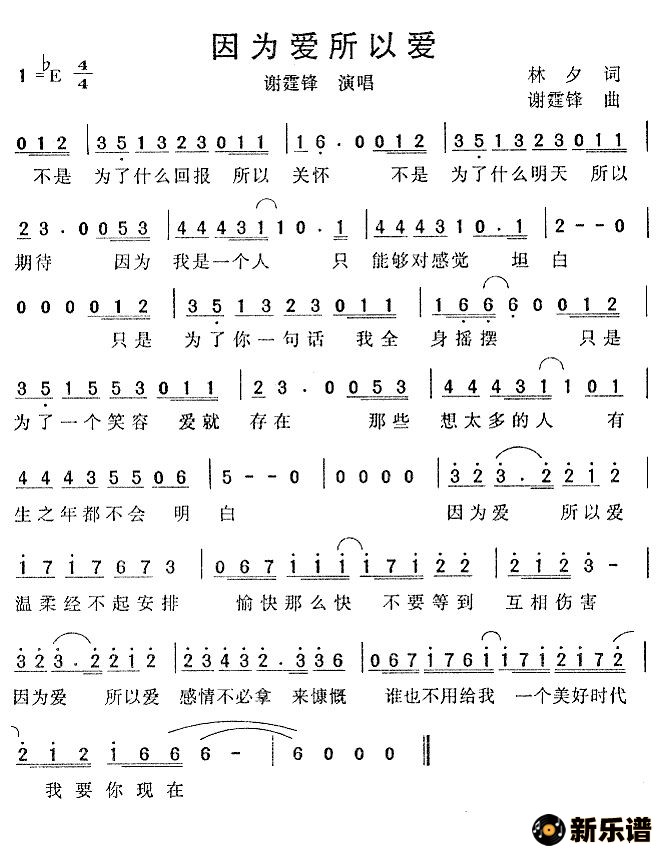 因为爱所以爱
1=♭E 4/4
谢霆锋 演唱
林夕 词
谢霆锋 曲
0 1 2 | 3 5 1 3 2 3 0 1 1 | 1 6 · 0 0 1 2 | 3 5 1 3 2 3 0 1 1 |
不是 为了什么回报 所以 关怀 不是 为了什么明天 所以
2 3 · 0 0 5 3 | 4 4 4 3 1 1 0 · 1 | 4 4 4 3 1 0 · 1 | 2 - - 0 |
期待 因为 我是一个人 只 能够对感觉 坦 白
0 0 0 0 1 2 | 3 5 1 3 2 3 0 1 1 | 1 6 6 6 0 0 1 2 |
只是 为了你一句话 我全 身摇摆 只是
3 5 1 5 5 3 0 1 1 | 2 3 · 0 0 5 3 | 4 4 4 3 1 1 0 1 |
为了一个笑容 爱就 存在 那些 想太多的人 有
4 4 4 3 5 5 0 6 | 5 - - 0 | 0 0 0 0 | 3 2 3 · 2 2 1 2 |
生之年都不会 明 白 因为爱 所以爱
1 7 1 7 6 7 3 | 0 6 7 1 1 1 1 7 1 2 2 | 2 1 2 3 - |
温柔经不起安排 愉快那么快 不要等到 互相伤害
3 2 3 · 2 2 1 2 | 2 3 4 3 2 · 3 3 6 | 0 6 7 1 7 6 1 1 7 1 2 1 7 2 |
因为爱 所以爱 感情不必拿 来慷慨 谁也不用给我 一个美好时代
2 1 2 1 6 6 6 - | 6 0 0 0 ‖
我要你现在
新乐谱